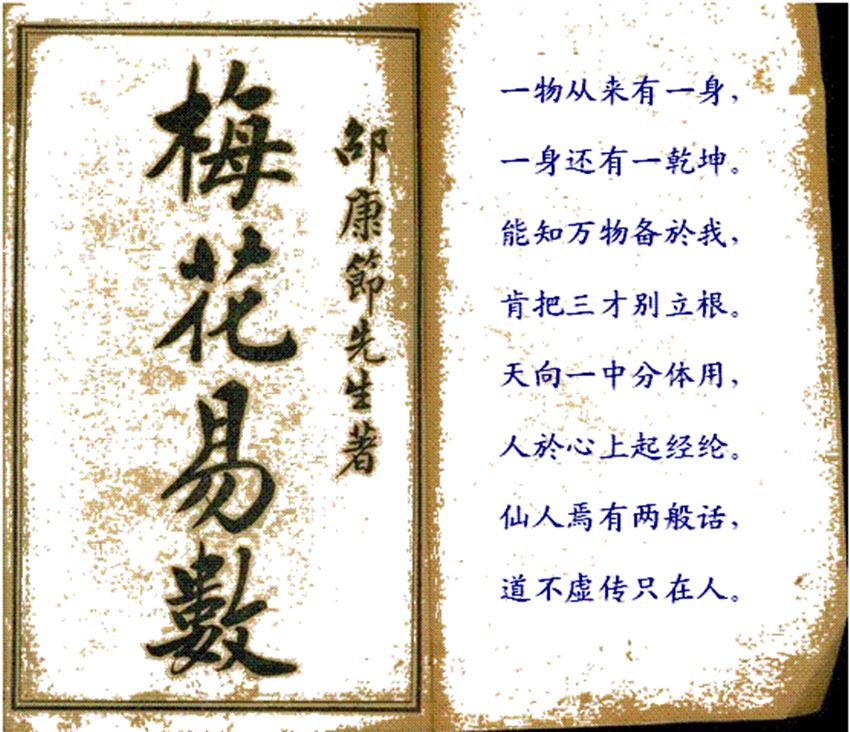 梅花易數
邵康節先生著
一物从来有一身，
一身还有一乾坤。
能知万物备於我，
肯把三才别立根。
天向一中分体用，
人於心上起经纶。
仙人焉有两般话，
道不虚传只在人。